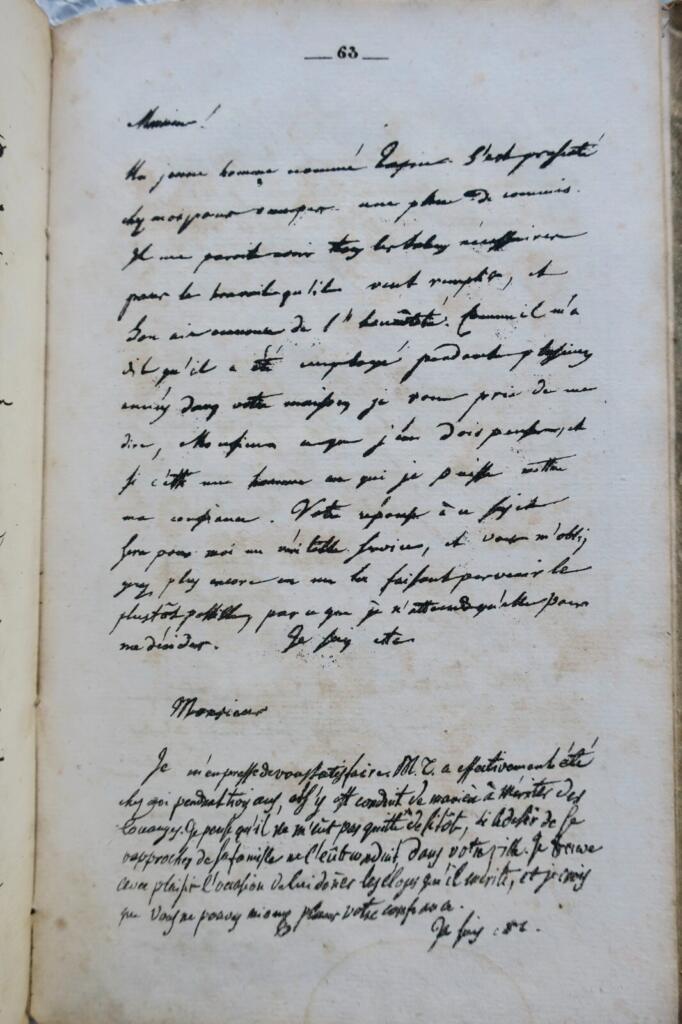 63
Monsieur!
Un jeune homme nommé s'est présenté
chez moi pour occuper une place de commis.
Il me paroit avoir tous les talens nécessaires
pour le travail qu'il veut remplir, et
son air annonce de l'honnêteté. Comme il m'a
dit qu'il a été employé pendant plusieurs
années dans votre maison, je vous prie de me
dire, Monsieur ce que j'en dois penser, et
si c'est une homme en qui je puisse mettre
ma confiance. Votre réponse à ce sujet
sera pour moi un véritable service, et vous m'obli
gerez plus encore en me la faisant parvenir le
plustôt possible, parce que je n'attends qu'elle pour
me décider. Je suis etc
Monsieur
Je m'empresse de vous satisfaire. M. T. a effectivement été
chez moi pendant trois ans, et s'y est conduit de manière à mériter des
louanges. Je pense qu'il ne m'eût pas quitté de sitôt, si le desir de se
rapprocher de sa famille ne l'eût conduit dans votre ville. Je trouve
avec plaisir l'occasion de lui donner les éloges qu'il mérite, et je crois
que vous ne pouvez mieux placer votre confiance.
Je suis etc.